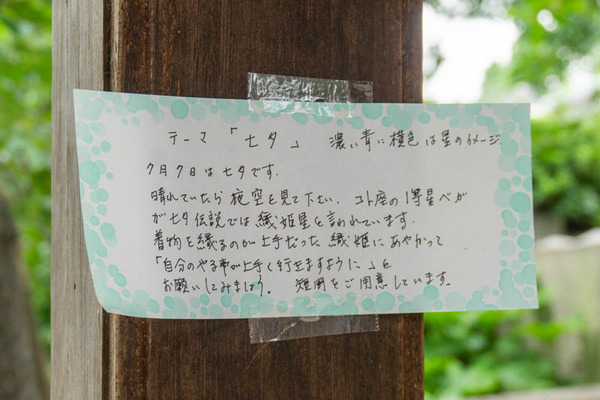 テーマ「七夕」 濃い青に橙色は星のイメージ.
7月7日は七夕です.
晴れていたら夜空を見て下さい. コト座の1等星ベガ
が七夕伝説では織姫星と言われています.
着物を織るのが上手だった織姫にあやかって
「自分のやる事が上手く行きますように」と
お願いしてみましょう。 短冊をご用意しています。